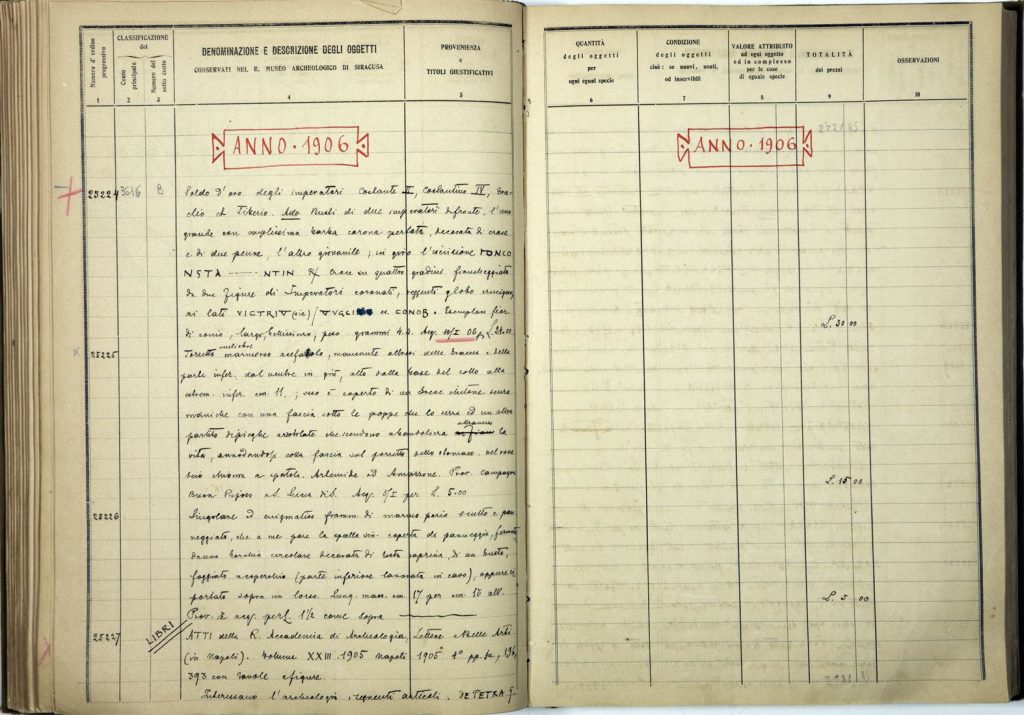 Numero d'ordine progressivo
CLASSIFICAZIONE del
Conto principale
Numero del sotto conto
DENOMINAZIONE E DESCRIZIONE DEGLI OGGETTI
CONSERVATI NEL R. MUSEO ARCHEOLOGICO DI SIRACUSA
PROVENIENZA
e
TITOLI GIUSTIFICATIVI
1 2 3 4 5
ANNO · 1906
25224 3616 B Soldo d'oro degli imperatori Costante II, Costantino IV, Era-
clio et Tiberio. Busti di due imperatori di fronte, l'uno
grande con amplissima barba corona perlata, decorata di croce
e di due penne, l'altro giovanile; in giro l'iscrizione
NSTA NTIN R/ Croce su quattro gradini fiancheggiata
da due figure di Imperatori coronati, globo crucigero,
ai lati VICTRIV (sic) / et CONOB. Esemplare fior
di conio, largo, bellissimo; peso grammi 4.4. Acq. 10/I 06 p.
25225 Torsetto muliebre marmoreo acefalo, mancante altresì delle braccia e della
parte infer. dal ventre in giù, alto dalla base del collo alla
estrem. infer. cm. 11.; esso è coperto di un breve chitone senza
maniche con una fascia sotto le poppe che lo serra ed un altro
partito di pieghe arrotolate che scendono a bandoliera attraverso la
vita, annodandosi colla fascia sul
chioma a spatola. Artemide od Amazzone. Prov. Campagna
Buon Riposo a S. Lucia di S. Acq. I per L. 5.00
25226 Singolare ed enigmatico framm. di marmo pario scolto e pan-
neggiato, che a me pare la spalla sin. coperta da panneggio, fermato
da una borchia circolare decorata di testa di un busto,
foggiato a coperchio (parte inferiore lavorata in cavo), oppure
portato sopra un torso. Lung. mass. cm. 17 per cm. 16 alt.
Prov. e acq. per L. 1 1/2 come sopra
LIBRI
25227 ATTI della R. Accademia di Archeologia, Lettere e Belle Arti
(in Napoli). Volume XXIII. 1905 Napoli 1905 4° pp.
393 con tavole e figure.
Interessano l'archeologia i seguenti articoli. DE PETRA G.
QUANTITÀ
degli oggetti
per
ogni egual specie
CONDIZIONE
degli oggetti
cioè: se nuovi, usati,
od inservibili
VALORE ATTRIBUITO
ad ogni oggetto
ed in complesso
per le cose
di eguale specie
TOTALITÀ
dei prezzi
OSSERVAZIONI
6 7 8 9 10
ANNO · 1906
L. 30 00
L. 15 00
L. 5 00